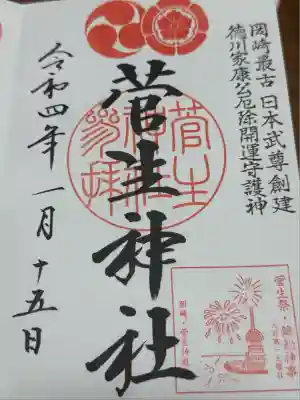 岡崎最古 日本武尊創建
徳川家康公厄除開運守護神
菅生神社
令和四年一月十五日
菅生
神社
参拝
菅生祭・鉾船神事
岡崎・菅生神社